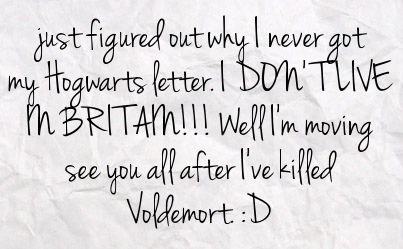 just figured out why I never got
my Hogwarts letter. I DON'T LIVE
IN BRITAIN!!! Well I'm moving
see you all after I've killed
Voldemort. :D